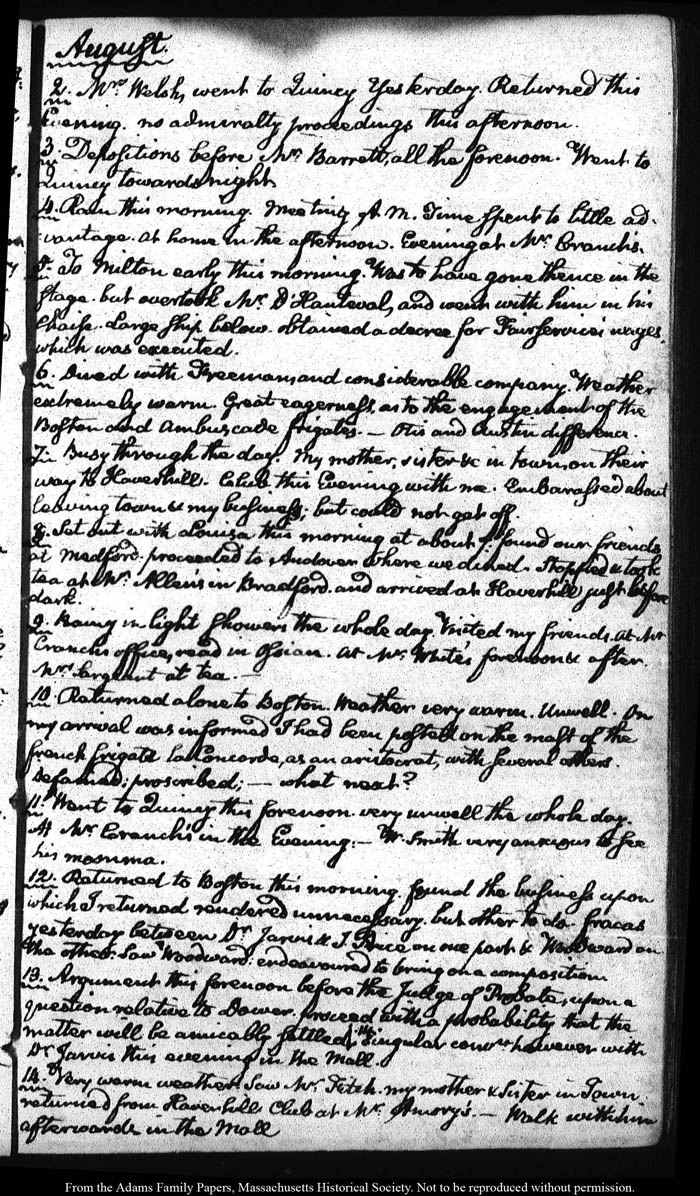 August.
2. Mrs Welsh, went to Quincy Yesterday. Returned this
Evening. no admiralty proceedings this afternoon.
3. Depositions before Mr Barrett, all the forenoon. Went to
Quincy towards night
4. Rain this morning. Meeting A.M. Time spent to little ad-
-vantage. at home in the afternoon. Evening at Mr Cranch's.
5. To Milton early this morning. Was to have gone thence in the
Stage. but overtook Mr D'Hauteval, and went with him in his
Chaise. Large Ship below. obtained a decree for Four wages,
which was executed.
6. Dined with Freeman, and considerable company. Weather
extremely warm. Great eagerness, as to the engagement of the
Boston and Ambuscade frigates. — Otis and Austin difference.
7. Busy through the day. My mother, sister &c in town, on their
way to Haverhill. Club this Evening with me. Embarassed about
leaving town & my business; but could not get off.
8. Set out with Louisa this morning at about found our friends
at Medford. proceeded to Andover where we dined. Stopped & took
tea at Mr Allens in Bradford. and arrived at Haverhill just before
dark.
9. Rainy in light showers the whole day. Visited my friends. at Mr
office, read in Ossian. at Mr White's forenoon & after.
Mrs Sargeant at tea. —
10. Returned alone to Boston. Weather very warm. Unwell. On
my arrival was informed I had been posted on the mast of the
french frigate la Concorde, as an aristocrat, with several others.
Defamed; proscribed; — what next?
11. Went to Quincy this forenoon very unwell the whole day.
At Mr Cranch's in the Evening. — W. Smith very anxious to see
his mamma.
12. Returned to Boston this morning. found the business upon
which I returned rendered unnecessary. but other to do. fracas
yesterday between Dr Jarvis & J. on one part & Woodward on
the other. Saw Woodward: endeavoured to bring on a composition
13. Argument this forenoon before the Judge of Probate, upon a
question relative to Dower. proceed with a probability that the
matter will be amicably settled. Singular convn however with
Dr Jarvis this evening in the Mall.
14. Very warm weather. Saw Mr Fitch. my mother & Sister in Town.
returned from Haverhill Club at Mr Amory's. — Walk with him
afterwards in the Mall
From the Adams Family Papers, Massachusetts Historical Society. Not to be reproduced without permission.